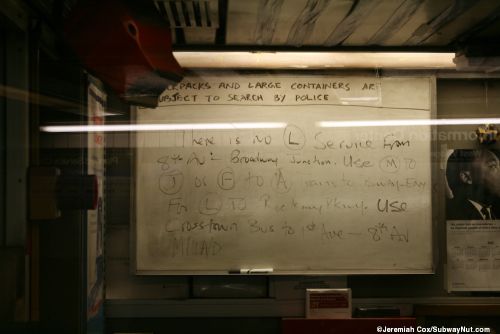 BACKPACKS AND LARGE CONTAINERS AR
SUBJECT TO SEARCH BY POLICE
There is no L Service from
8th Av - Broadway Junction. Use M to
J or F to A
For L to Rockaway Pkwy. Use
Crosstown Bus to 1st Ave - 8th Av
©Jeremiah Cox/SubwayNut.com